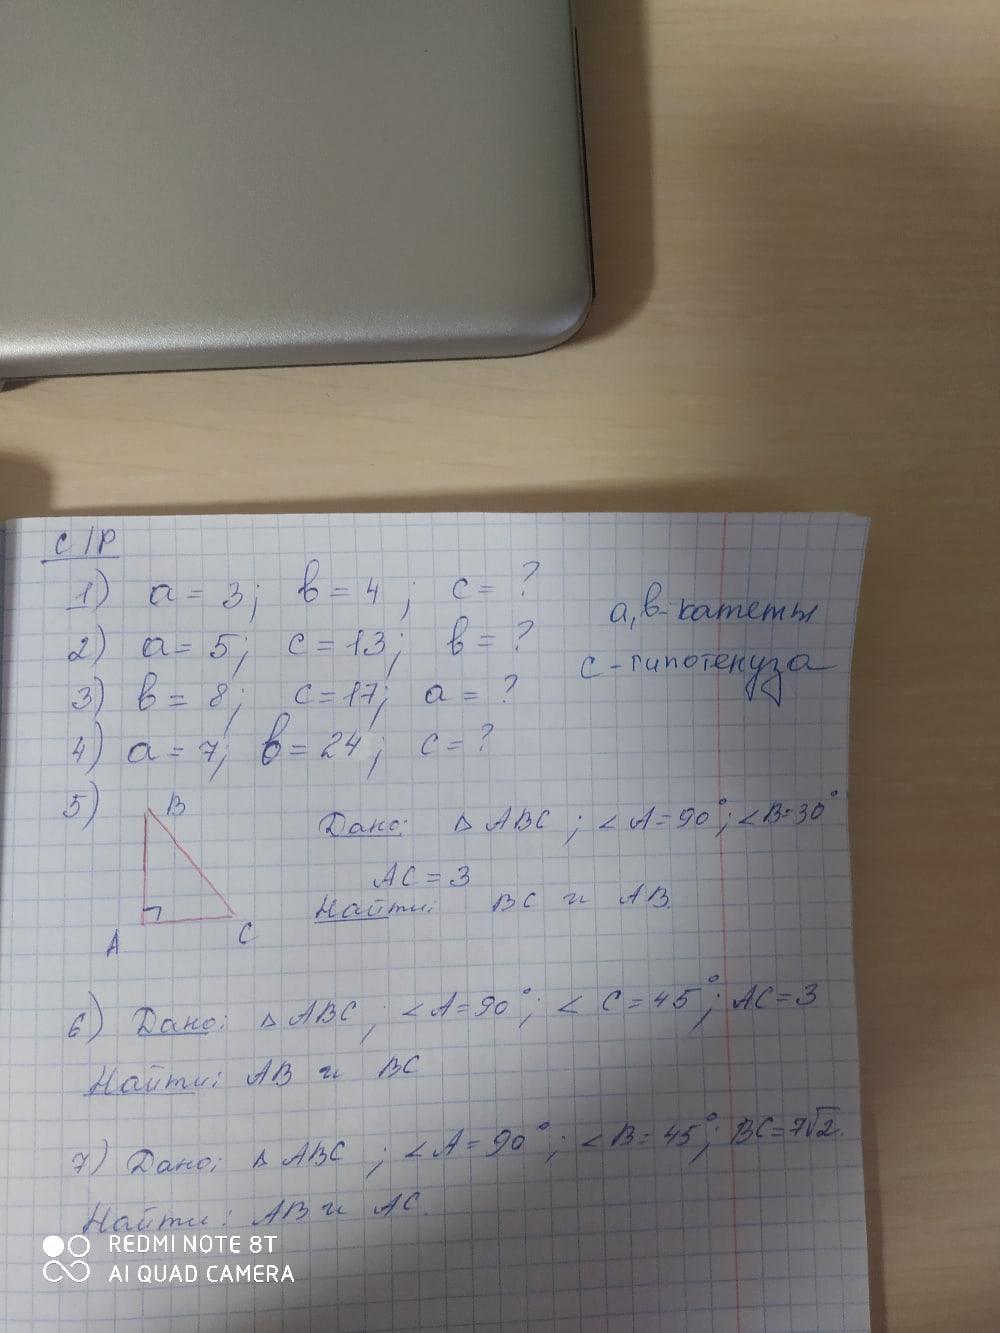 С/Р
1) a = 3; в = 4; c = ?
2) a = 5; c = 13; в = ?
3) в = 8; c = 17; a = ?
4) a = 7; в = 24; c = ?
a, в - катеты
c - гипотенуза
5) B A C
Дано: △ ABC; ∠A=90°; ∠B=30°
AC = 3
Найти: BC и AB.
6) Дано: △ ABC; ∠A=90°; ∠C=45°; AC=3
Найти: AB и BC
7) Дано: △ ABC; ∠A=90°; ∠B=45°; BC=7√2.
Найти: AB и AC.
REDMI NOTE 8T
AI QUAD CAMERA